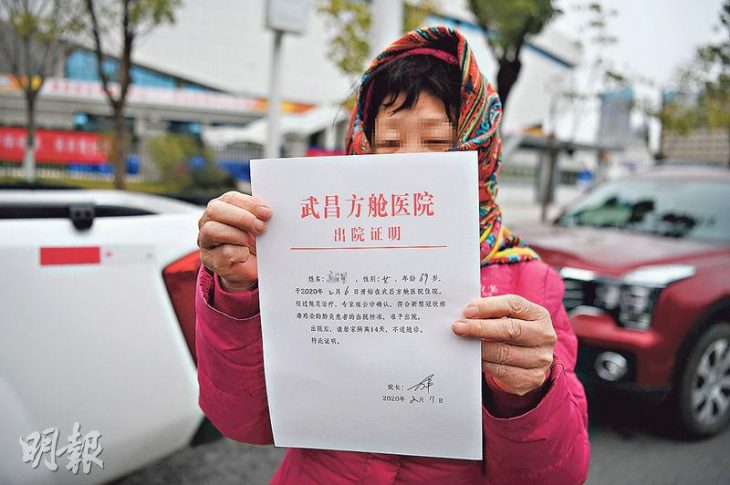 武昌方舱医院
出院证明
姓名: 性别:女、年龄69岁,
于2020年2月6日开始在武昌方舱医院住院。
经过规范治疗、专家组会诊确认,符合新型冠状病
毒感染的肺炎患者的出院标准,准予出院。
出院后,请居家隔离14天,不适随诊。
特此证明。
院长:
2020年2月 日
明報